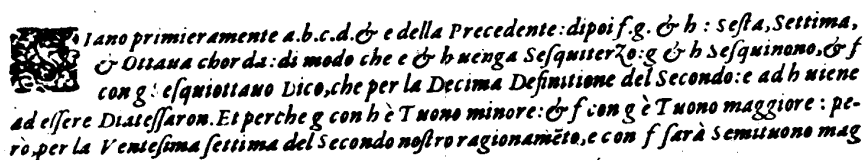 Siano primieramente a.b.c.d.& e della Precedente: dipoi f.g. & h : Sesta, Settima,
& Ottaua chorda: di modo che e & h uenga Sesquiterzo: g & h Sesquinono, & f
con g: esquiottauo Dico, che per la Decima Definitione del Secondo: e ad h uiene
ad essere Diatessaron. Et perche g con h è Tuono minore: & f con g è Tuono maggiore : pe-
rò, per la Ventesima settima del Secondo nostro ragionamẽto, e con f sarà Semituono mag